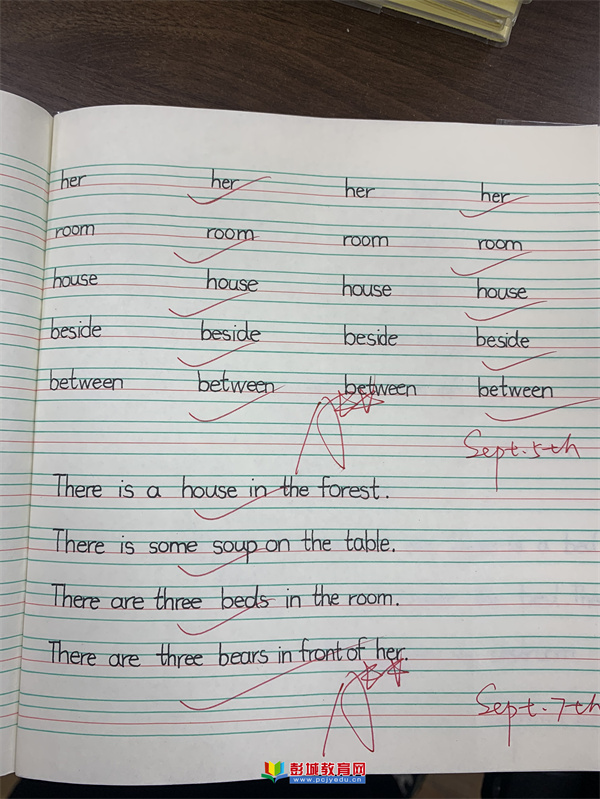 her her her her
room room room room
house house house house
beside beside beside beside
between between between between
Sept. 5th
There is a house in the forest.
There is some soup on the table.
There are three beds in the room.
There are three bears in front of her.
Sept. 7th
彭城教育网
www.pcjyedu.cn